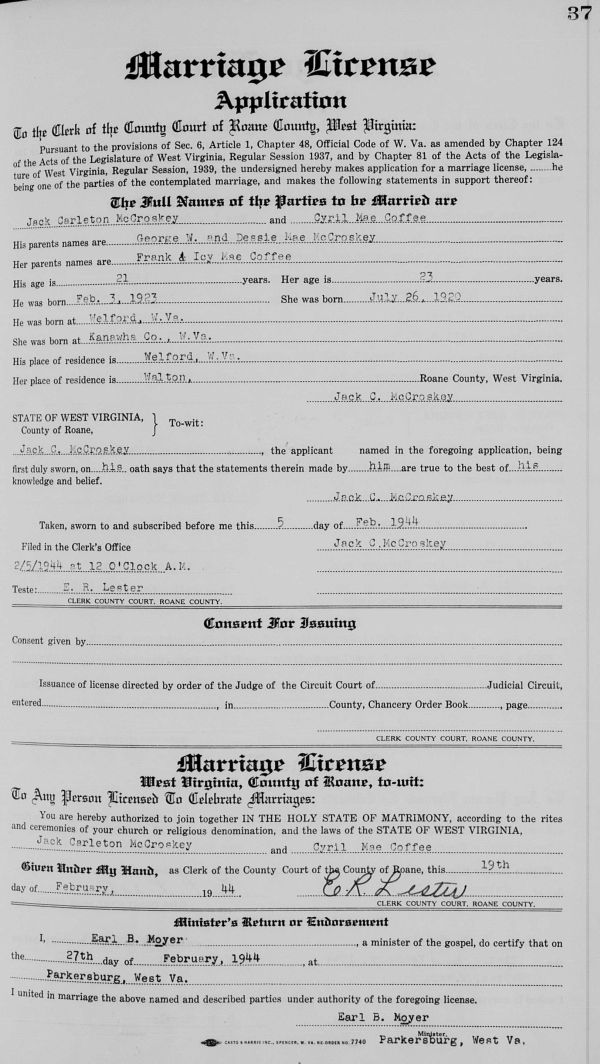 37
Marriage License
Application
To the Clerk of the County Court of Roane County, West Virginia:
Pursuant to the provisions of Sec. 6, Article 1, Chapter 48, Official Code of W. Va. as amended by Chapter 124
of the Acts of the Legislature of West Virginia, Regular Session 1937, and by Chapter 81 of the Acts of the Legisla-
ture of West Virginia, Regular Session, 1939, the undersigned hereby makes application for a marriage license, ........he
being one of the parties of the contemplated marriage, and makes the following statements in support thereof:
The Full Names of the Parties to be Married are
Jack Carleton McCroskey and Cyril Mae Coffee
His parents names are George W. and Dessie Mae McCroskey
Her parents names are Frank & Icy Mae Coffee
His age is 21 years. Her age is 23 years.
He was born Feb. 3, 1923 She was born July 26, 1920
He was born at Welford, W.Va.
She was born at Kanawha Co., W.Va.
His place of residence is Welford, W.Va.
Her place of residence is Walton, Roane County, West Virginia.
Jack C. McCroskey
STATE OF WEST VIRGINIA,
County of Roane, } To-wit:
Jack C. McCroskey, the applicant named in the foregoing application, being
first duly sworn, on his oath says that the statements therein made by him are true to the best of his
knowledge and belief.
Jack C. McCroskey
Taken, sworn to and subscribed before me this 5 day of Feb. 1944
Filed in the Clerk's Office Jack C.McCroskey
2/5/1944 at 12 O'Clock A.M.
Teste: E. R. Lester
CLERK COUNTY COURT, ROANE COUNTY.
Consent For Issuing
Consent given by
Issuance of license directed by order of the Judge of the Circuit Court of Judicial Circuit,
entered, in County, Chancery Order Book, page
CLERK COUNTY COURT, ROANE COUNTY.
Marriage License
West Virginia, County of Roane, to-wit:
To Any Person Licensed To Celebrate Marriages:
You are hereby authorized to join together IN THE HOLY STATE OF MATRIMONY, according to the rites
and ceremonies of your church or religious denomination, and the laws of the STATE OF WEST VIRGINIA,
Jack Carleton McCroskey and Cyril Mae Coffee
Given Under My Hand, as Clerk of the County Court of the County of Roane, this 19th
day of February, 1944 E R Lester
CLERK COUNTY COURT, ROANE COUNTY.
Minister's Return or Endorsement
I, Earl B. Moyer, a minister of the gospel, do certify that on
the 27th day of February, 1944, at
Parkersburg, West Va.
I united in marriage the above named and described parties under authority of the foregoing license.
Earl B. Moyer
Minister.
CASTO & HARRIS INC., SPENCER, W. VA. RE-ORDER NO. 7740 Parkersburg, West Va.